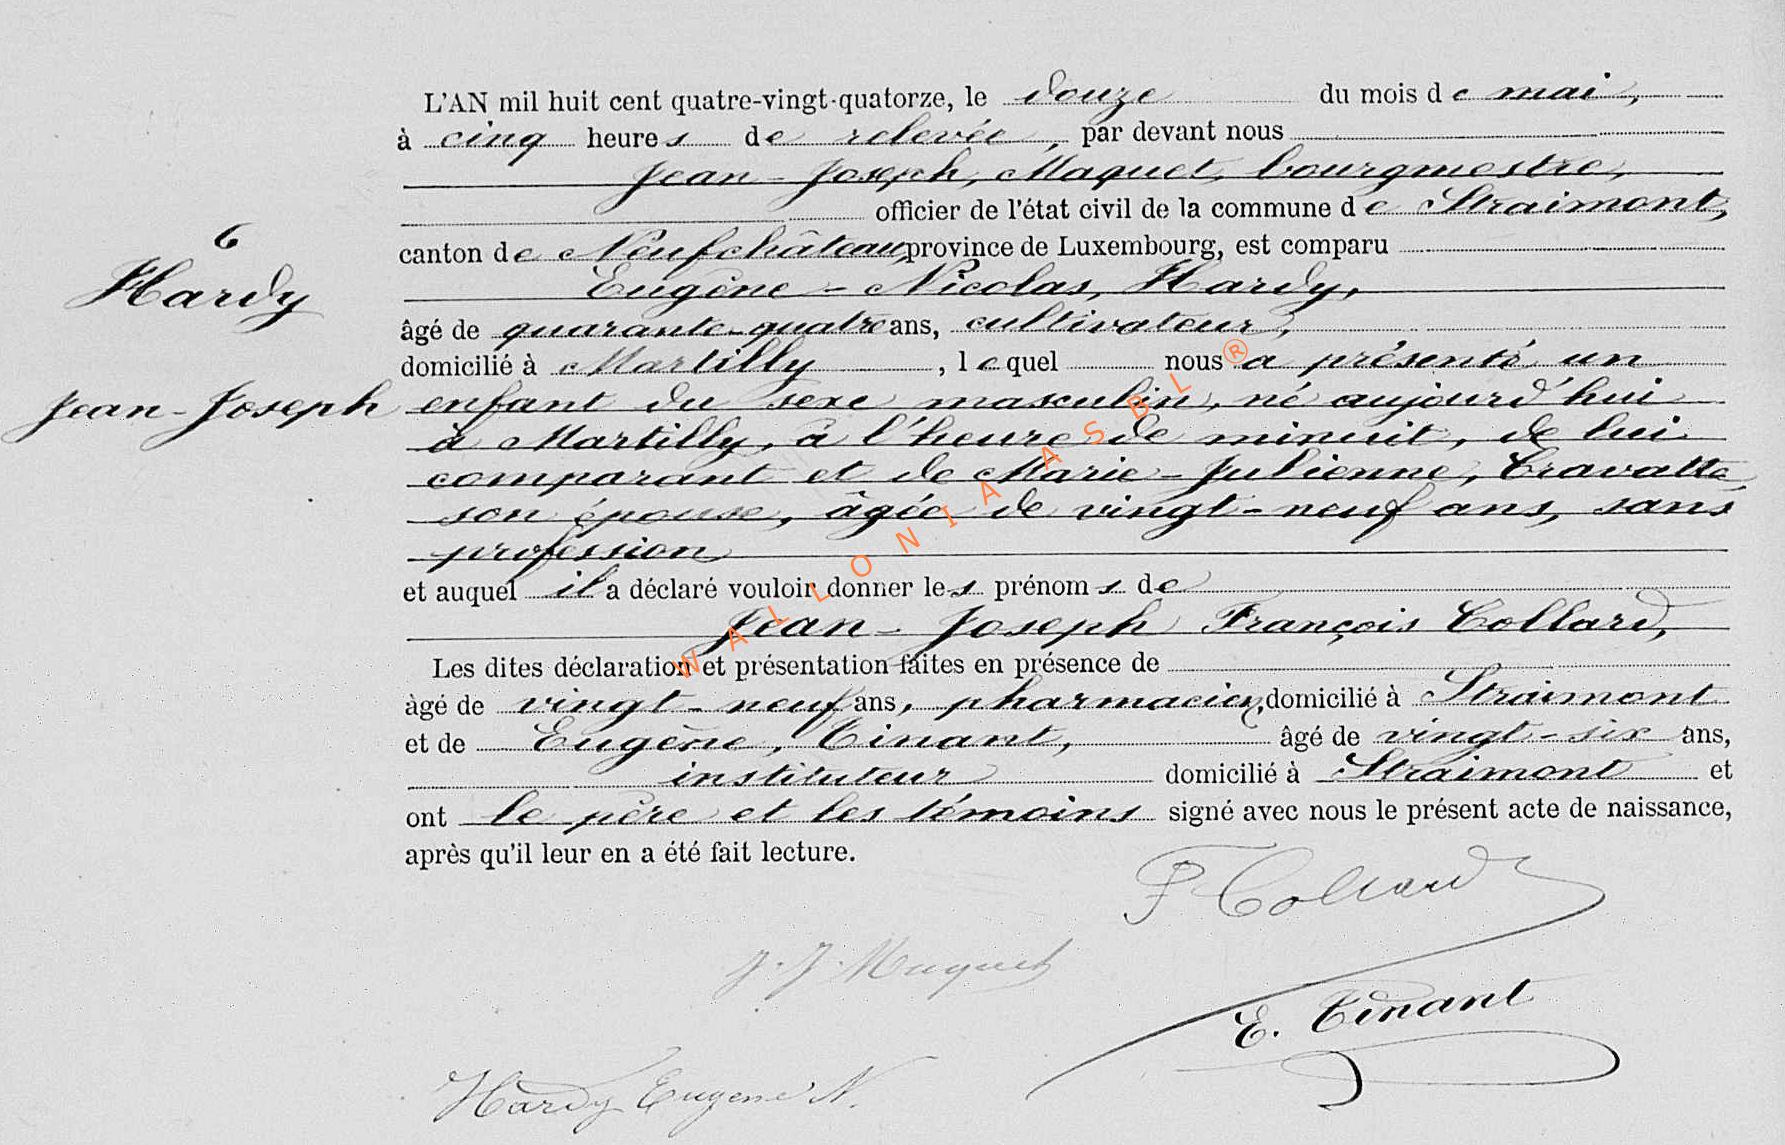 L'AN mil huit cent quatre-vingt-quatorze, le douze du mois de mai,
à cinq heures de relevée, par devant nous
Jean-Joseph, Maquet, bourgmestre,
officier de l'état civil de la commune de Straimont,
6
canton de Neufchâteau, province de Luxembourg, est comparu
Hardy
Eugène-Nicolas, Hardy,
âgé de quarante-quatre ans, cultivateur,
domicilié à Martilly, lequel nous a présenté un
Jean-Joseph
enfant du sexe masculin, né aujourd'hui
à Martilly, à l'heure de minuit, de lui
comparant et de Marie-Julienne, Cravatte,
son épouse, âgée de vingt-neuf ans, sans
profession
et auquel il a déclaré vouloir donner les prénoms de
Jean-Joseph François Collard,
Les dites déclaration et présentation faites en présence de
âgé de vingt-neuf ans, pharmacien, domicilié à Straimont
et de Eugène, Tinant, âgé de vingt-six ans,
instituteur domicilié à Straimont et
ont le père et les témoins signé avec nous le présent acte de naissance,
après qu'il leur en a été fait lecture.
F Collard
J. J. Maquet
E. Tinant
Hardy Eugene N.
WALLONIA ASBL ®